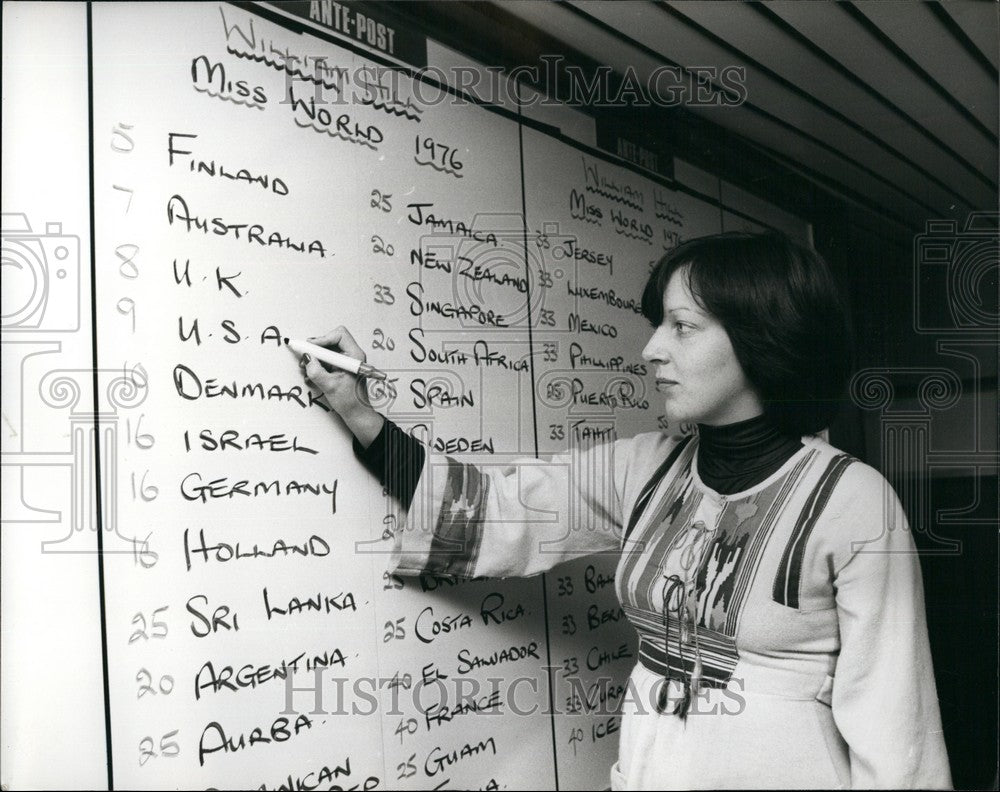 ANTE-POST
WILLIAM HILL
MISS WORLD 1976
FINLAND
7 AUSTRALIA
8 U.K.
9 U.S.A.
10 DENMARK
16 ISRAEL
16 GERMANY
16 HOLLAND
25 SRI LANKA
20 ARGENTINA
25 AURBA
DOMINICAN
25 JAMAICA
20 NEW ZEALAND
33 SINGAPORE
20 SOUTH AFRICA
25 SPAIN
SWEDEN
25 COSTA RICA
40 EL SALVADOR
40 FRANCE
25 GUAM
ANTE-POST
WILLIAM HILL
MISS WORLD 1976
33 JERSEY
33 LUXEMBOURG
33 MEXICO
33 PHILLIPINES
25 PUERTO RICO
33 TAHITI
33
33
33 CHILE
33
40 ICE
HISTORIC IMAGES
HISTORIC IMAGES